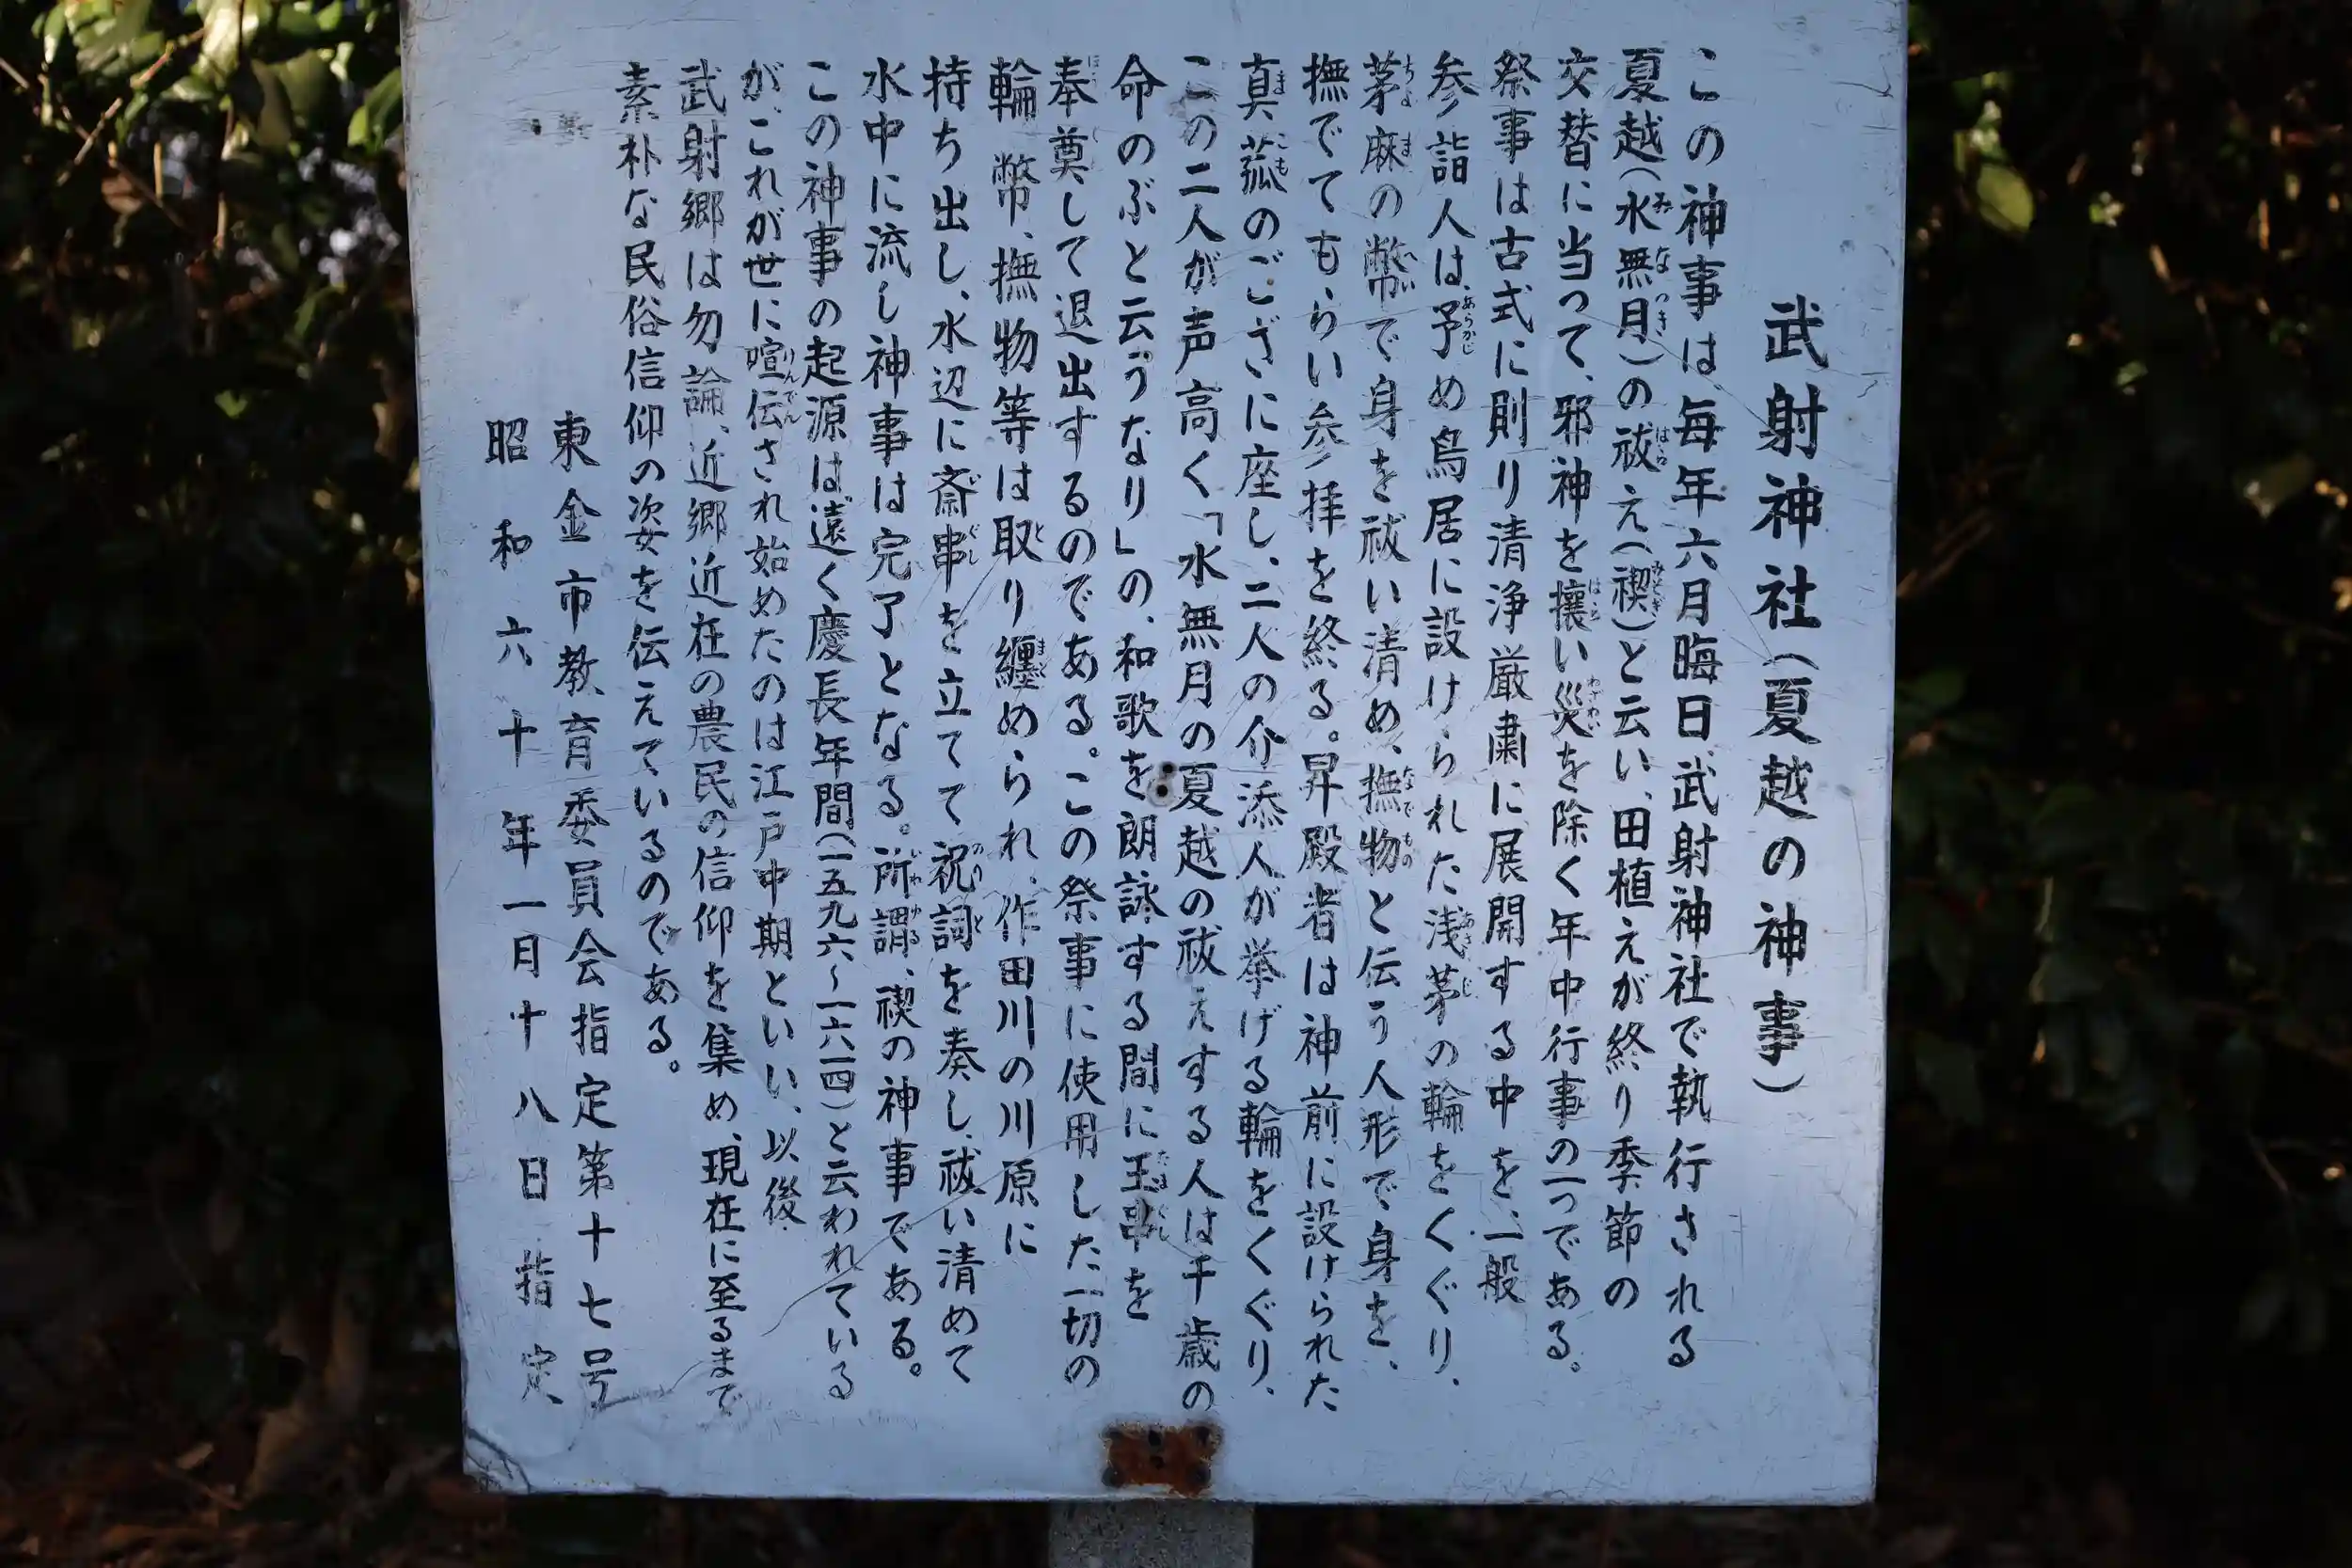 武射神社(夏越の神事)
この神事は毎年六月晦日、武射神社で執行される
夏越(水無月)の祓え(禊)と云い、田植えが終り季節の
交替に当って、邪神を攘い災を除く年中行事の一つである。
祭事は古式に則り清浄厳粛に展開する中を、一般
参詣人は、予め鳥居に設けられた浅茅の輪をくぐり、
茅麻の幣で身を祓い清め、撫物と伝う人形で身を、
撫でてもらい参拝を終る。昇殿者は神前に設けられた
真菰のござに座し、二人の介添人が挙げる輪をくぐり、
この二人が声高く「水無月の夏越の祓えする人は千歳の
命のぶと云うなり」の、和歌を朗詠する間に玉串を
奉奠して退出するのである。この祭事に使用した一切の
輪、幣、撫物等は取り纏められ、作田川の川原に
持ち出し、水辺に斎串を立てて祝詞を奏し、祓い清めて
水中に流し神事は完了となる。所謂、禊の神事である。
この神事の起源は遠く慶長年間(一五九六〜一六一四)と云われている
が、これが世に喧伝され始めたのは江戸中期といい、以後
武射郷は勿論、近郷近在の農民の信仰を集め、現在に至るまで
素朴な民俗信仰の姿を伝えているのである。
東金市教育委員会指定第十七号
昭和六十年一月十八日指定